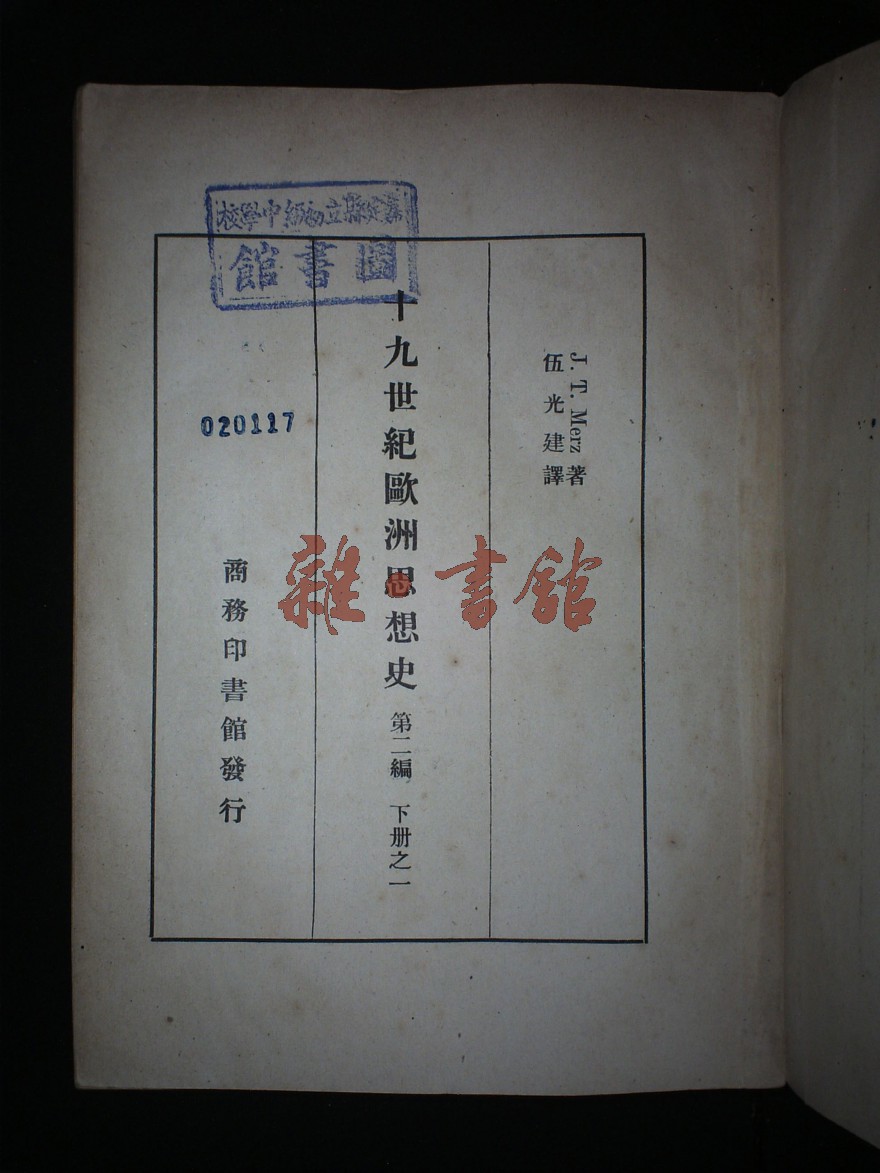 縣立初級中學校
圖書館
J. T. Merz 著
伍光建譯
十九世紀歐洲思想史 第二編 下册之一
020117
商務印書館發行
雜書館